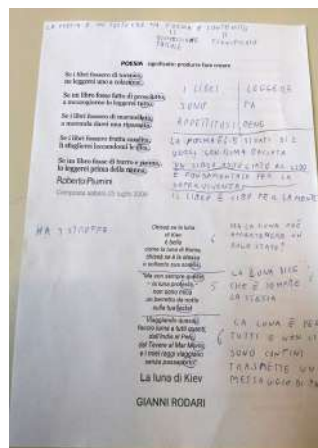 LA POESIA È UN TESTO CHE HA FORMA E CONTENUTO
SIGNIFICATO
POESIA significato: produrre fare creare
Se i libri fossero di torrone,
ne leggerei uno a colazione.
Se un libro fosse fatto di prosciutto,
a mezzogiorno lo leggerei tutto.
Se i libri fossero di marmellata,
a merenda darei una ripassata.
Se i libri fossero frutta candita,
li sfoglierei leccandomi le dita.
Se un libro fosse di burro e panna,
lo leggerei prima della nanna.
Roberto Piumini
I LIBRI
SONO
APPETITOSI
LEGGERE
FA
BENE
LA POESIA È
IL LIBRO È CIBO PER LA MENTE
HA 3 STROFE
Chissà se la luna
di Kiev
è bella
come la luna di Roma,
chissà se è la stessa
o soltanto sua sorella...
6
"Ma son sempre quella!
- la luna protesta -
non sono mica
un berretto da notte
sulla tua testa!
5
Viaggiando quassù
faccio lume a tutti quanti,
dall'India al Perù,
dal Tevere al Mar Morto,
e i miei raggi viaggiano
senza passaporto".
6
MA LA LUNA PUÒ
APPARTENERE AD
UNO STATO?
LA LUNA DICE
CHE È SEMPRE
LA STESSA
LA LUNA È PER
TUTTI E NON CI
SONO CONFINI
TRASMETTE UN
MESSAGGIO DI
La luna di Kiev
GIANNI RODARI